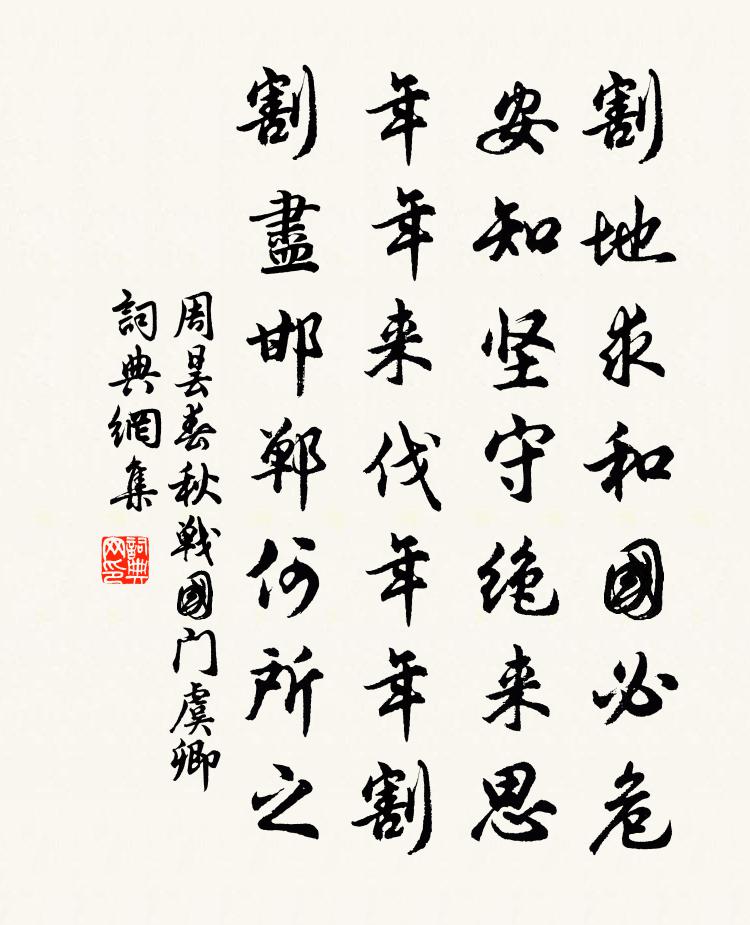 割地求和國必危
安知坚守绝来思
年年来伐年年割
割盡邯鄲何所之
周昙春秋戰國门虞卿
詞典網集
詞典
网印